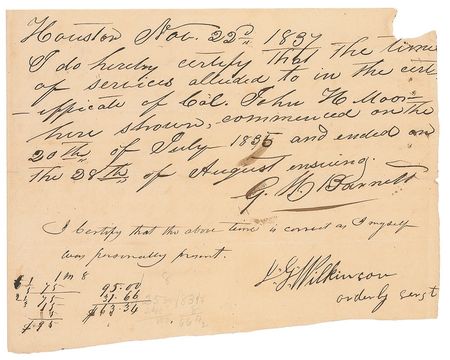 Houston Nov. 22nd 1837
I do hereby certify that the time
of services alluded to in the cert-
-ifficate of Col. John H Moore
here shown, commenced on the
20th of July 1835 and ended on
the 28th of August ensuing.
G. W Barnett
I Certify that the above time is correct as I myself
was personally present.
Wilkinson
orderly sergt
1 m 8
75
95.00
75
31.66
$63.34
$95